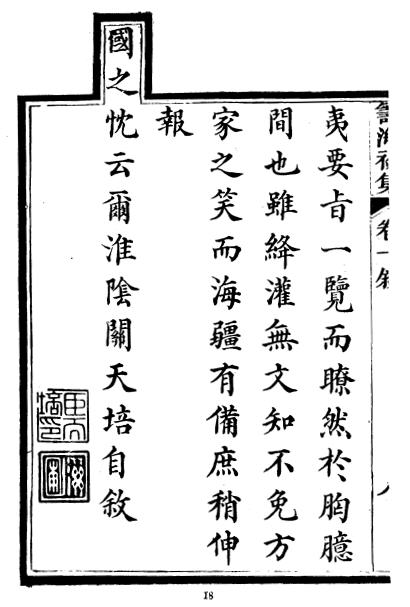 籌海初集 卷一敘
夷要旨一覽而瞭然於胸臆
間也雖絳灌無文知不免方
家之笑而海疆有備庶稍伸
報
國之忱云爾淮陰關天培自敘
18